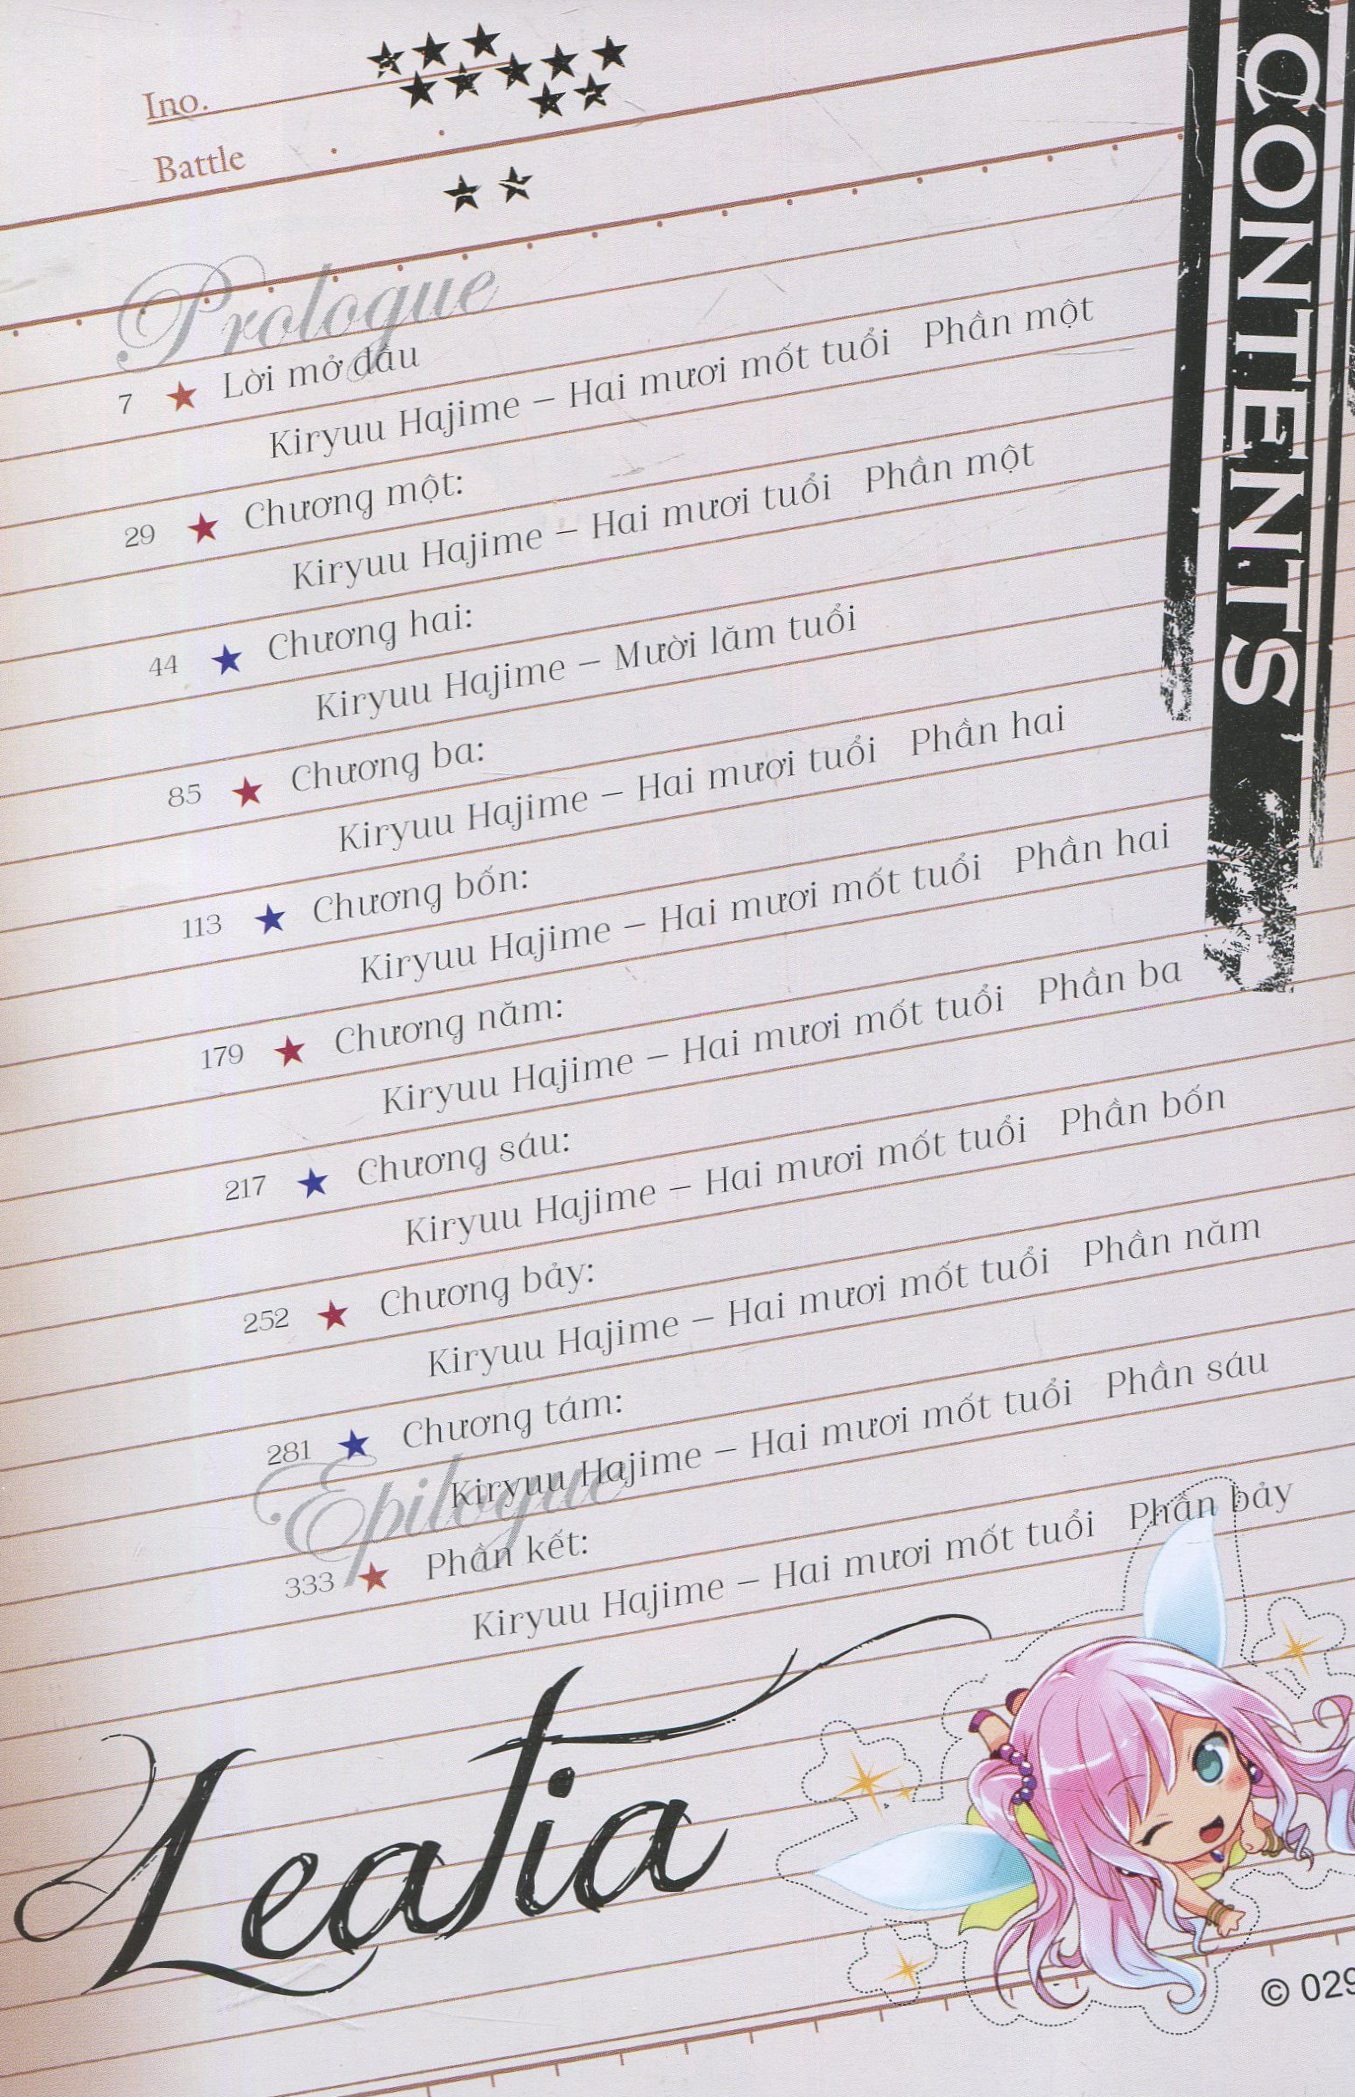 Ino.
Battle
CONTENTS
Prologue
7 ★ Lời mở đầu
Kiryuu Hajime – Hai mươi mốt tuổi Phần một
29 ★ Chương một:
Kiryuu Hajime – Hai mươi tuổi Phần một
44 ★ Chương hai:
Kiryuu Hajime – Mười lăm tuổi
85 ★ Chương ba:
Kiryuu Hajime – Hai mươi tuổi Phần hai
113 ★ Chương bốn:
Kiryuu Hajime – Hai mươi mốt tuổi Phần hai
179 ★ Chương năm:
Kiryuu Hajime – Hai mươi mốt tuổi Phần ba
217 ★ Chương sáu:
Kiryuu Hajime – Hai mươi mốt tuổi Phần bốn
252 ★ Chương bảy:
Kiryuu Hajime – Hai mươi mốt tuổi Phần năm
281 ★ Chương tám:
Kiryuu Hajime – Hai mươi mốt tuổi Phần sáu
Epilogue
333 ★ Phần kết:
Kiryuu Hajime – Hai mươi mốt tuổi Phần bảy
Leatia
© 029